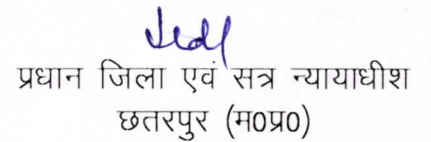 प्रधान जिला एवं सत्र न्यायाधीश
छतरपुर (म०प्र०)